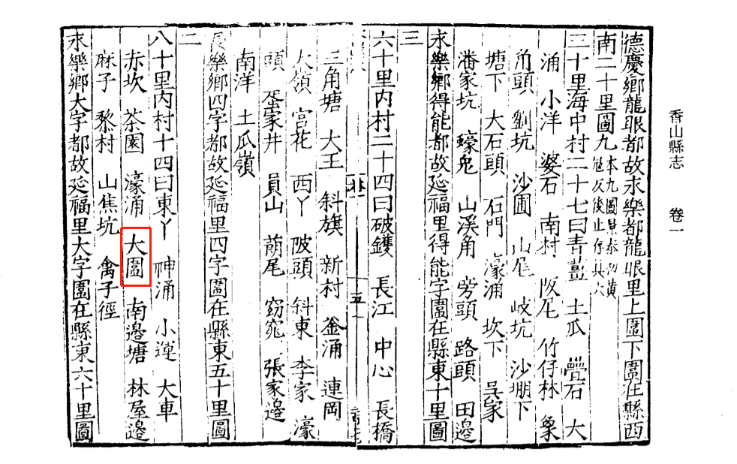 香山縣志 卷一
德慶鄉龍眼都故永樂都龍眼里上圍下圍在縣西
南二十里圖九 本九圖景泰初黃賊反後止存其六
三十里海中村二十七曰青薑 土瓜 疊石 大
涌 小洋 婆石 南村 阪尾 竹仔林 象
角頭 劉坑 沙圃 山尾 岐坑 沙堋下
塘下 大石頭 石門 濠涌 坎下 吳家
潘家坑 蠔殼 山溪角 旁頭 路頭 田邊
永樂鄉得能都故延福里得能字圍在縣東十里圖
三
六十里内村二十四曰破鑊 長江 中心 長橋
三角塘 大王 斜旗 新村 釜涌 連岡
大嶺 宫花 西丫 陂頭 斜東 李家 濠
頭 疍家井 員山 蓢尾 窈窕 張家邊
南洋 土瓜嶺
長樂鄉四字都故延福里四字圍在縣東五十里圖
二
八十里内村十四曰東丫 神涌 小逕 大車
赤坎 茶園 濠涌 大圍 南邊塘 林屋邊
麻子 黎村 山焦坑 禽子徑
永樂鄉大字都故延福里大字圍在縣東六十里圖